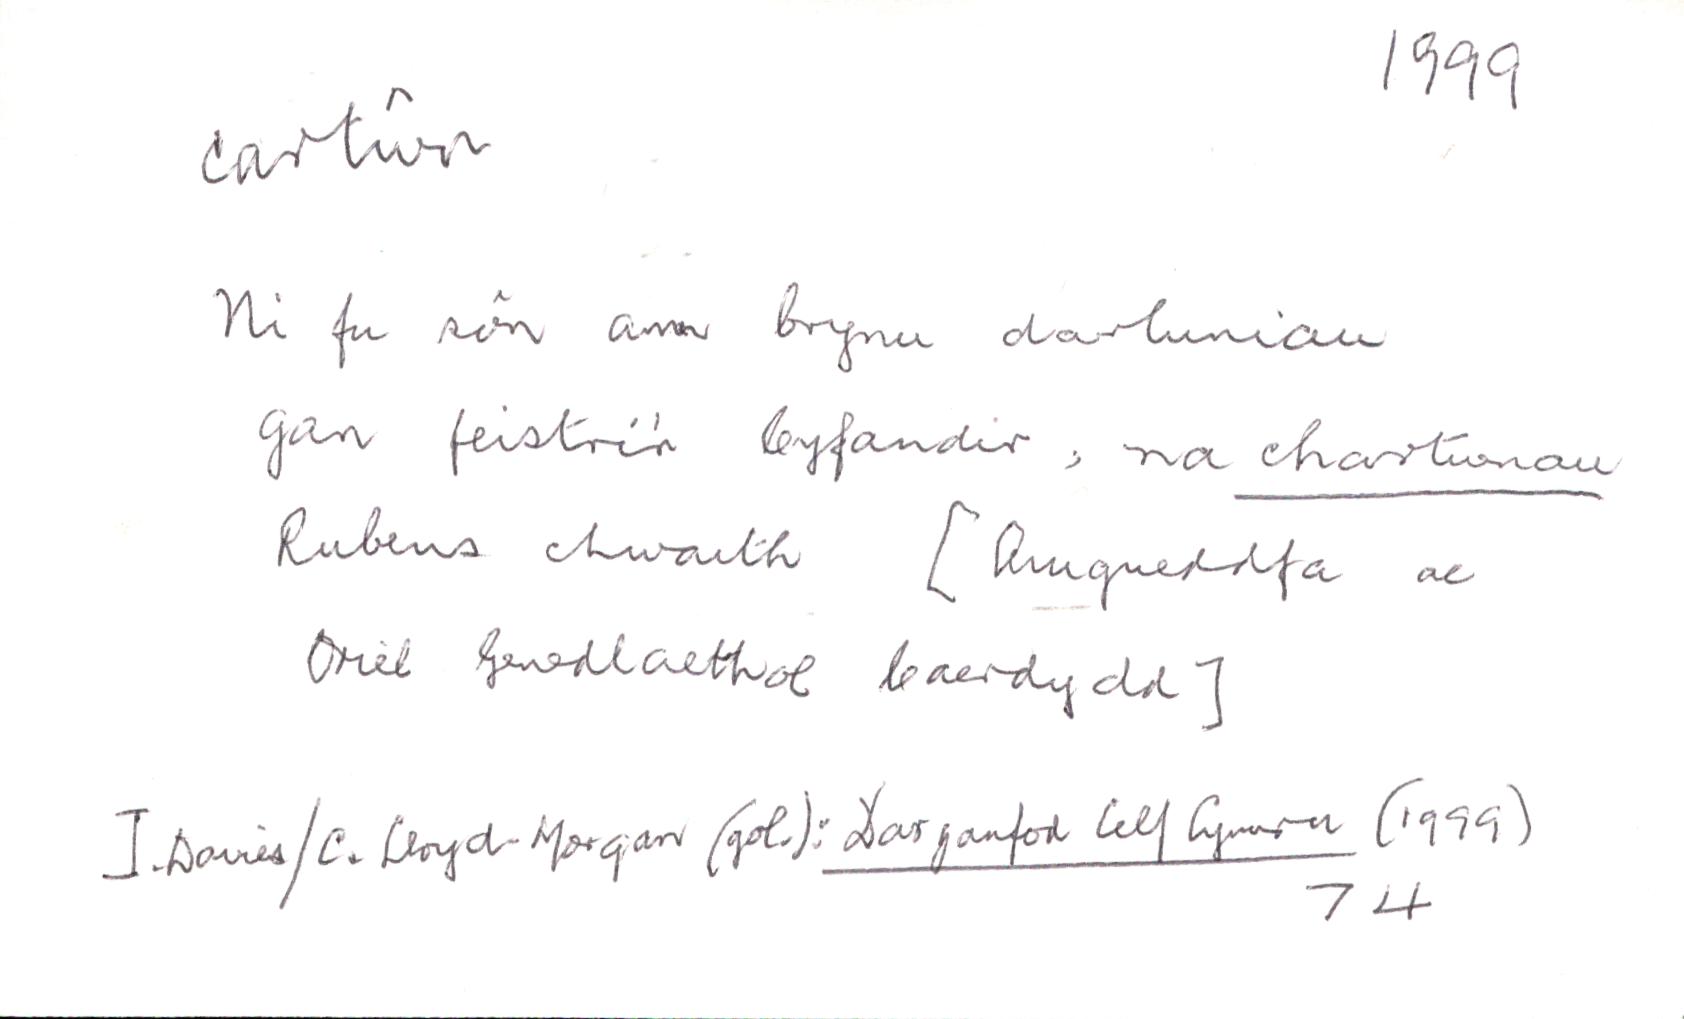 1999
cartŵn
Ni fu sôn am brynu darluniau
gan feistri'r Cyfandir, na chartwnau
Rubens chwaith [Amgueddfa ac
Oriel Genedlaethol Caerdydd]
I. Davies/C. Lloyd-Morgan (gol.): Darganfod Celf Cymru (1999)
74